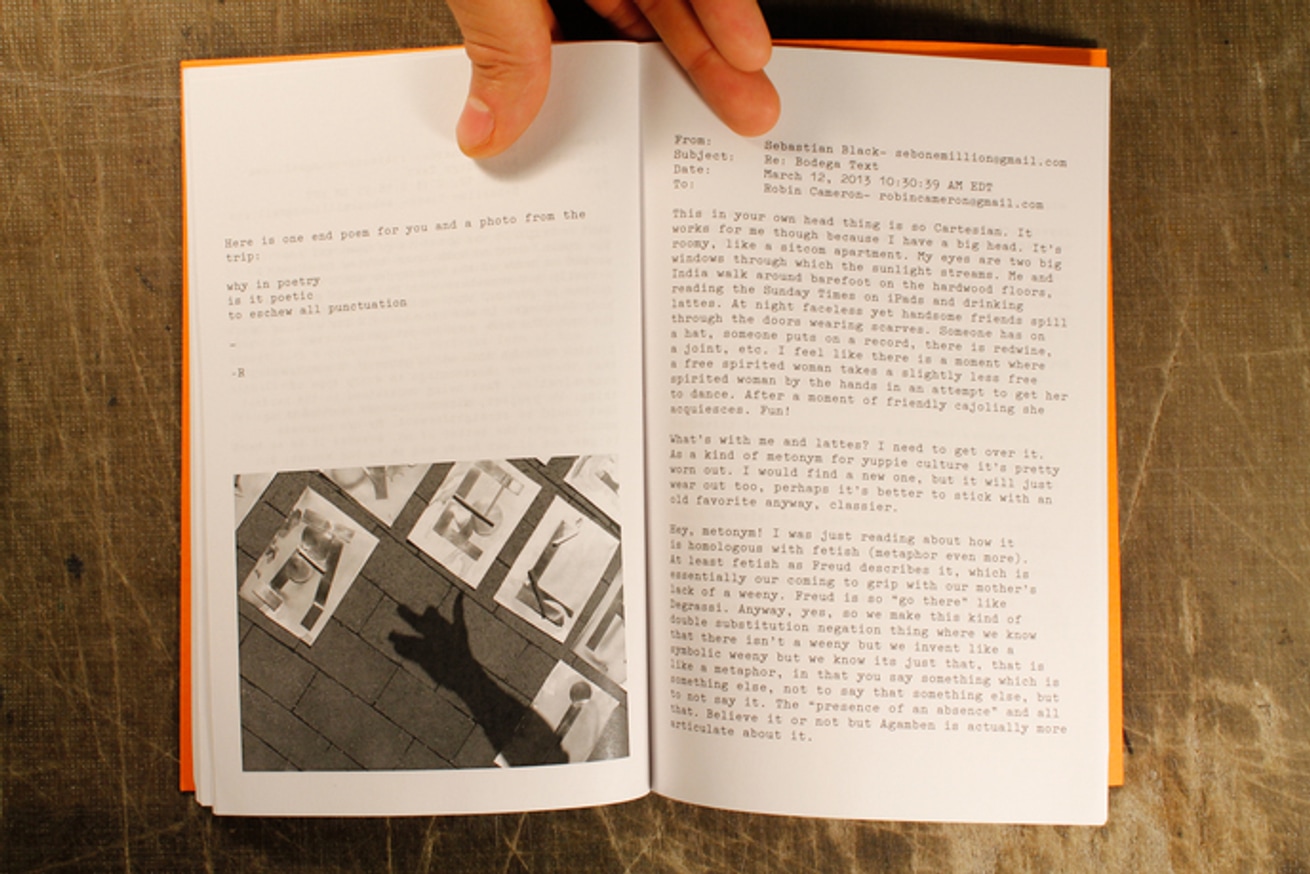 Here is one end poem for you and a photo from the
trip:
why in poetry
is it poetic
to eschew all punctuation
–
-R
From: Sebastian Black- sebonemillion@gmail.com
Subject: Re: Bodega Text
Date: March 12, 2013 10:30:39 AM EDT
To: Robin Cameron- robincameron@gmail.com
This in your own head thing is so Cartesian. It
works for me though because I have a big head. It's
roomy, like a sitcom apartment. My eyes are two big
windows through which the sunlight streams. Me and
India walk around barefoot on the hardwood floors,
reading the Sunday Times on iPads and drinking
lattes. At night faceless yet handsome friends spill
through the doors wearing scarves. Someone has on
a hat, someone puts on a record, there is redwine,
a joint, etc. I feel like there is a moment where
a free spirited woman takes a slightly less free
spirited woman by the hands in an attempt to get her
to dance. After a moment of friendly cajoling she
acquiesces. Fun!
What's with me and lattes? I need to get over it.
As a kind of metonym for yuppie culture it's pretty
worn out. I would find a new one, but it will just
wear out too, perhaps it's better to stick with an
old favorite anyway, classier.
Hey, metonym! I was just reading about how it
is homologous with fetish (metaphor even more).
At least fetish as Freud describes it, which is
essentially our coming to grip with our mother's
lack of a weeny. Freud is so "go there" like
Degrassi. Anyway, yes, so we make this kind of
double substitution negation thing where we know
that there isn't a weeny but we invent like a
symbolic weeny but we know its just that, that is
like a metaphor, in that you say something which is
something else, not to say that something else, but
to not say it. The "presence of an absence" and all
that. Believe it or not but Agamben is actually more
articulate about it.